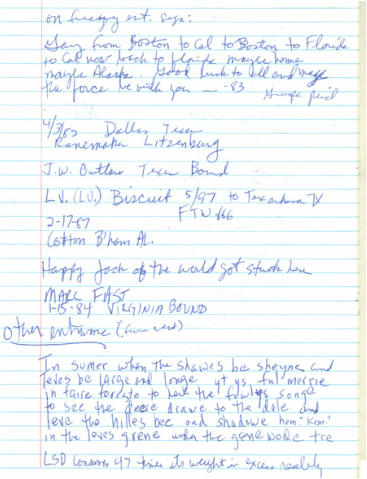 on freeway ext. says:
Gary from Boston to Cal to Boston to Florida
to Cal now back to florida maybe home
maybe Alaska. Good luck to all and may
the force be with you — -83
4/3/83 Dallas Texas
Ranemaker Litzenburg
J.W. Outlaw Texas Bound
L.V. (LU.) Biscuit 5/97 to Texarkana TX
FTW 666
2-17-87
Cotton B'ham Al.
Happy Jack of the world got stuck here
MARC FAST
1-15-84 VIRGINIA BOUND
Other entrance (from west)
In sumer when the shawes be sheyne and
leves be large and longe yt ys ful merrie
in faire foreste to hear the fowlys songe
to see the deere drawe to the dale and
leve the hilles hee and shadowe hem
in the leves grene under the grenewode tre
LSD consumes 47 times its weight in excess reality